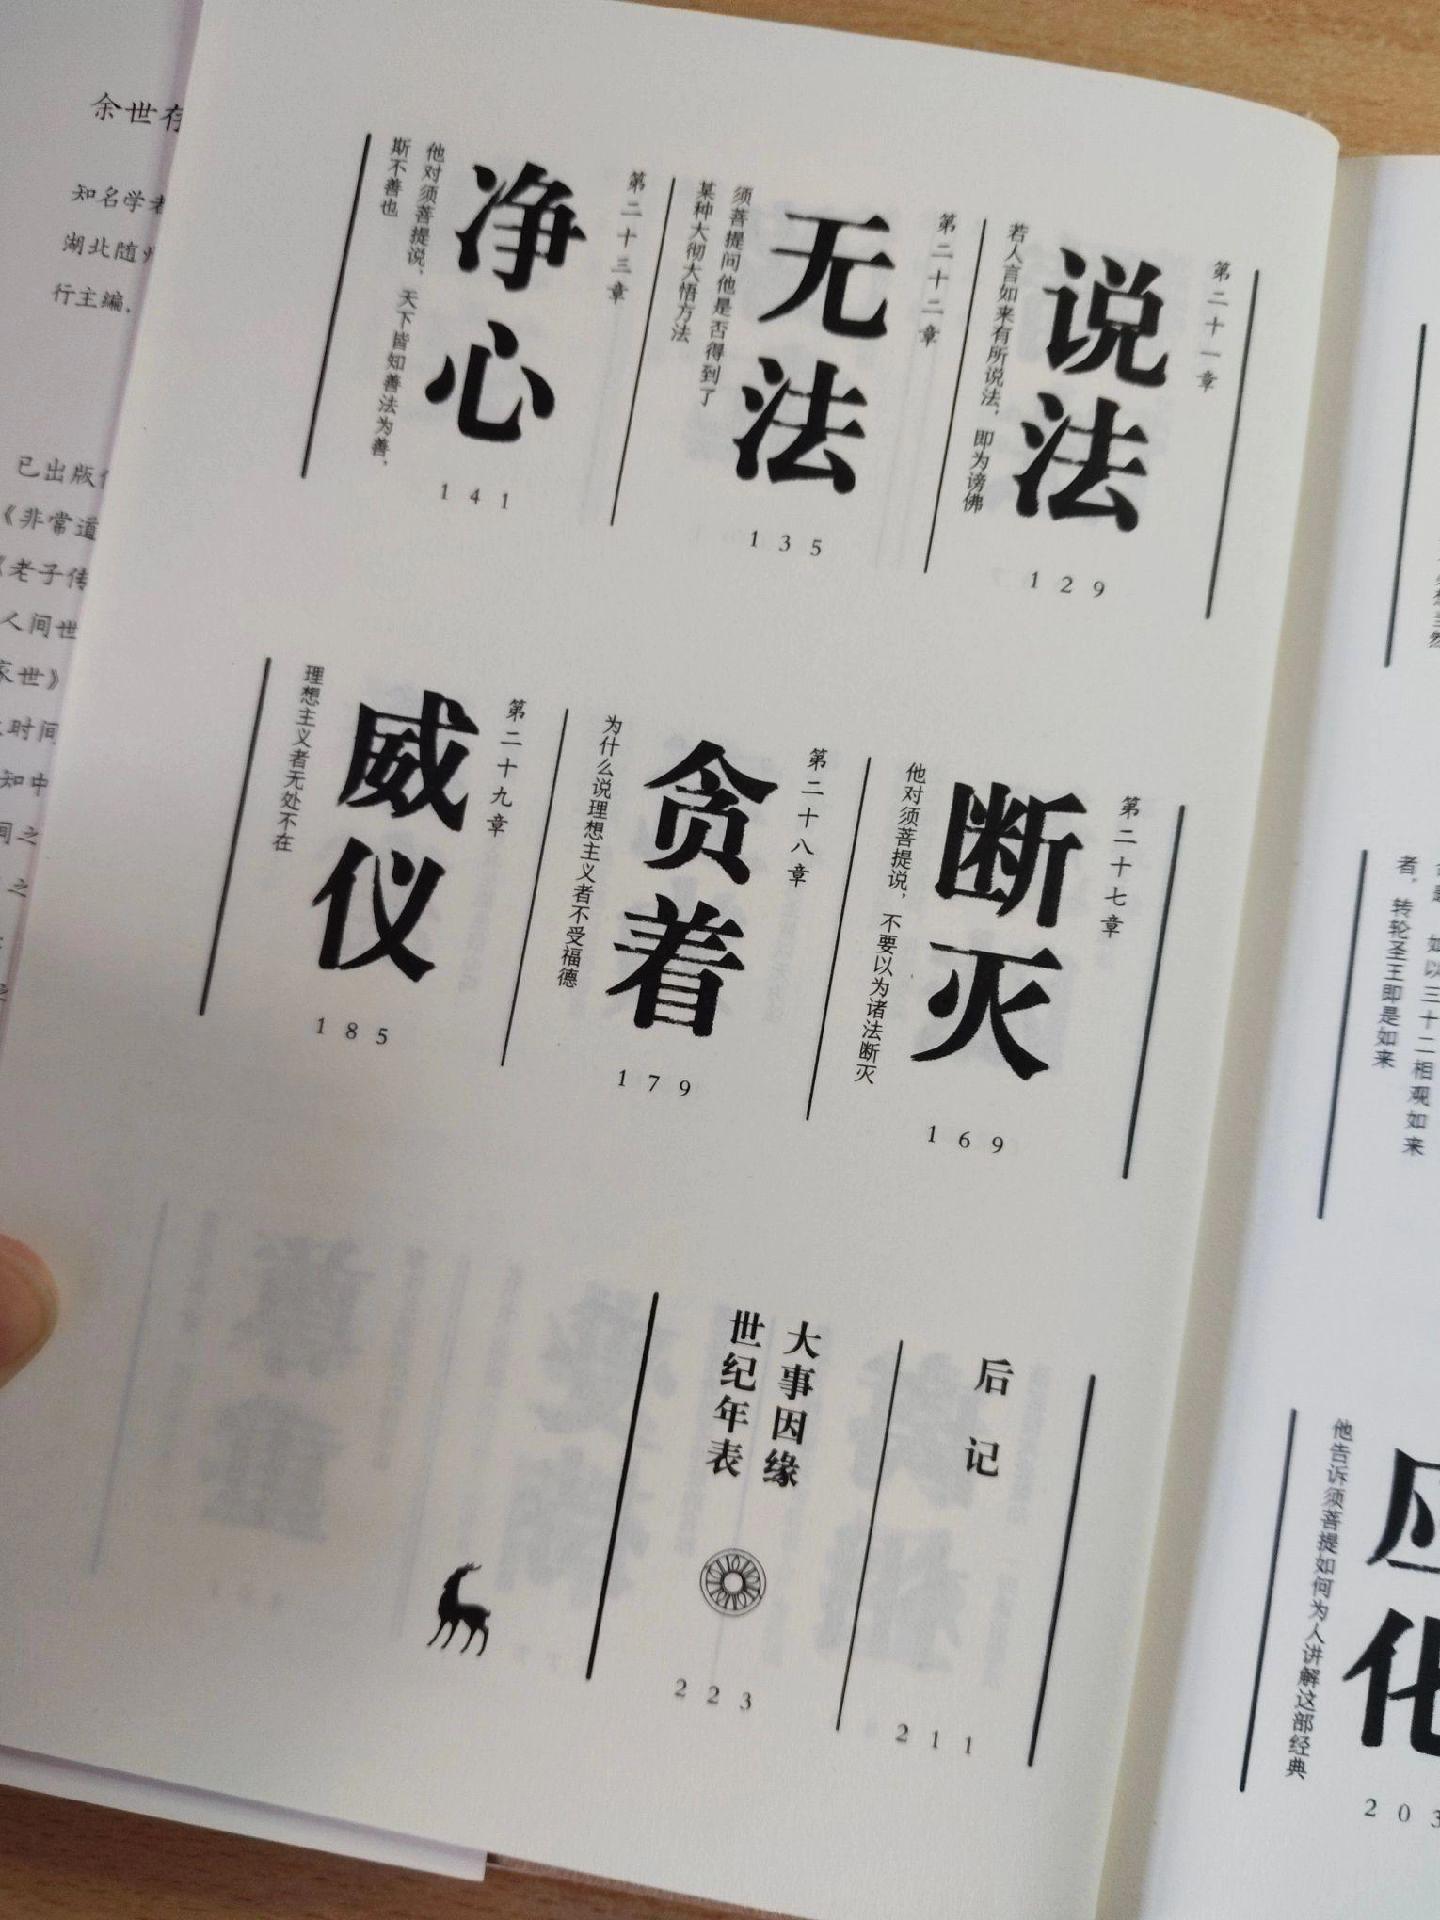 余世存
知名学者
湖北随州
行主编.
已出版作
《非常道
《老子传
人间世
家世》
时间
知中
间之
之
第二十一章
说法
若人言如来有所说法，即为谤佛
129
第二十二章
无法
须菩提问他是否得到了
某种大彻大悟方法
135
第二十三章
净心
他对须菩提说，天下皆知善法为善，
斯不善也
141
第二十七章
断灭
他对须菩提说，不要以为诸法断灭
169
第二十八章
贪着
为什么说理想主义者不受福德
179
第二十九章
威仪
理想主义者无处不在
185
后记
211
大事因缘
世纪年表
223
如以三十二相观如来
者，转轮圣王即是如来
应化
他告诉须菩提如何为人讲解这部经典
203